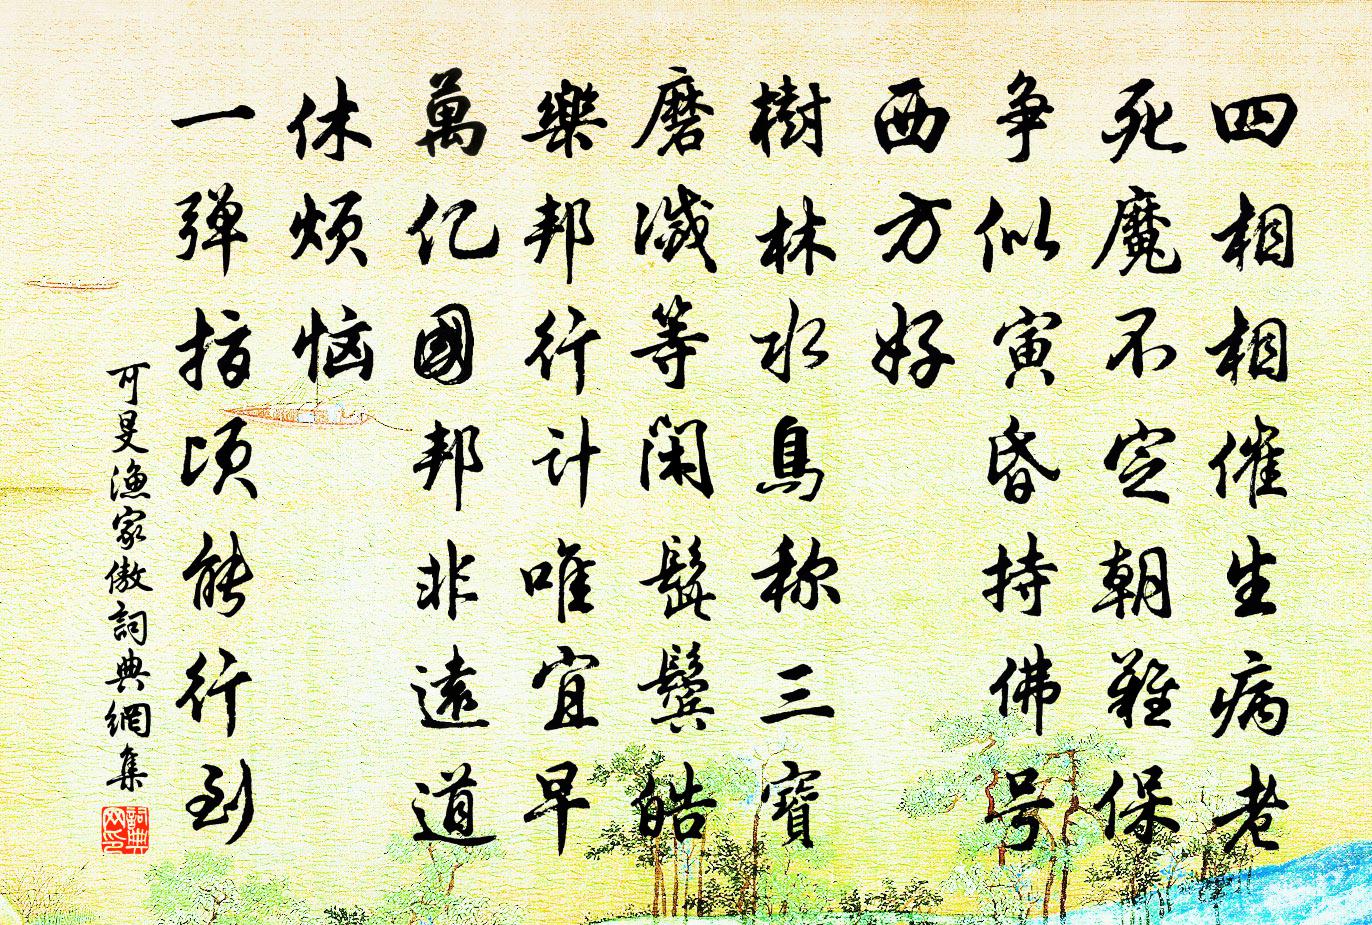 四相相催生病老
死魔不定朝難保
争似寅昏持佛号
西方好
樹林水鳥称三寶
磨滅等闲髭鬓皓
樂邦行计唯宜早
萬亿國邦非遠道
休烦恼
一弹指顷能行到
可旻漁家傲詞典網集
詞典網印